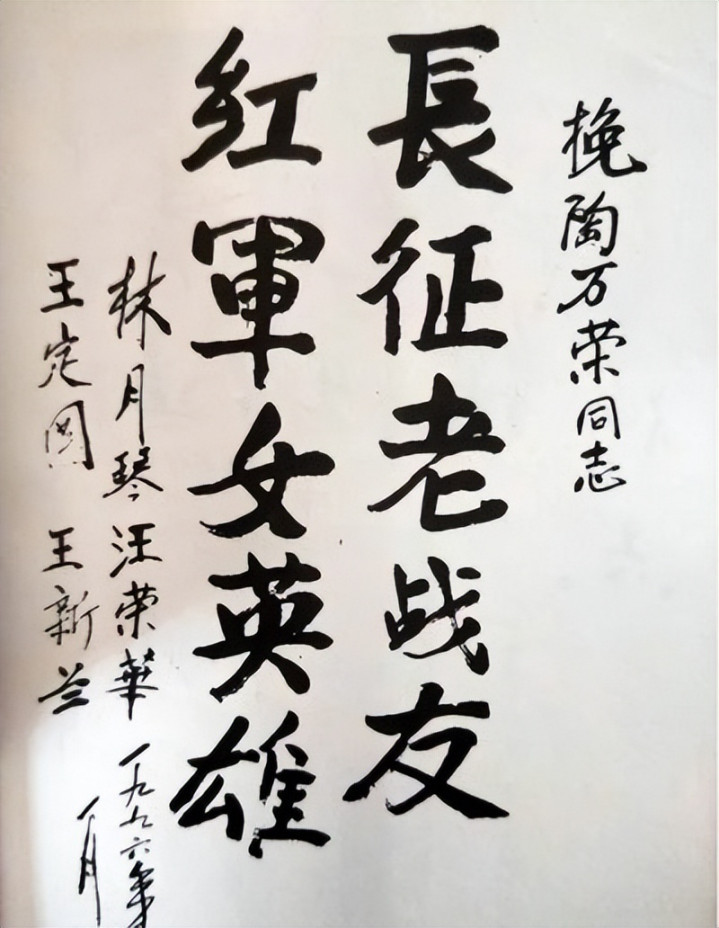 挽陶万荣同志
長征老战友
紅軍女英雄
林月琴 汪荣華
王定国 王新兰
一九九六年
一月